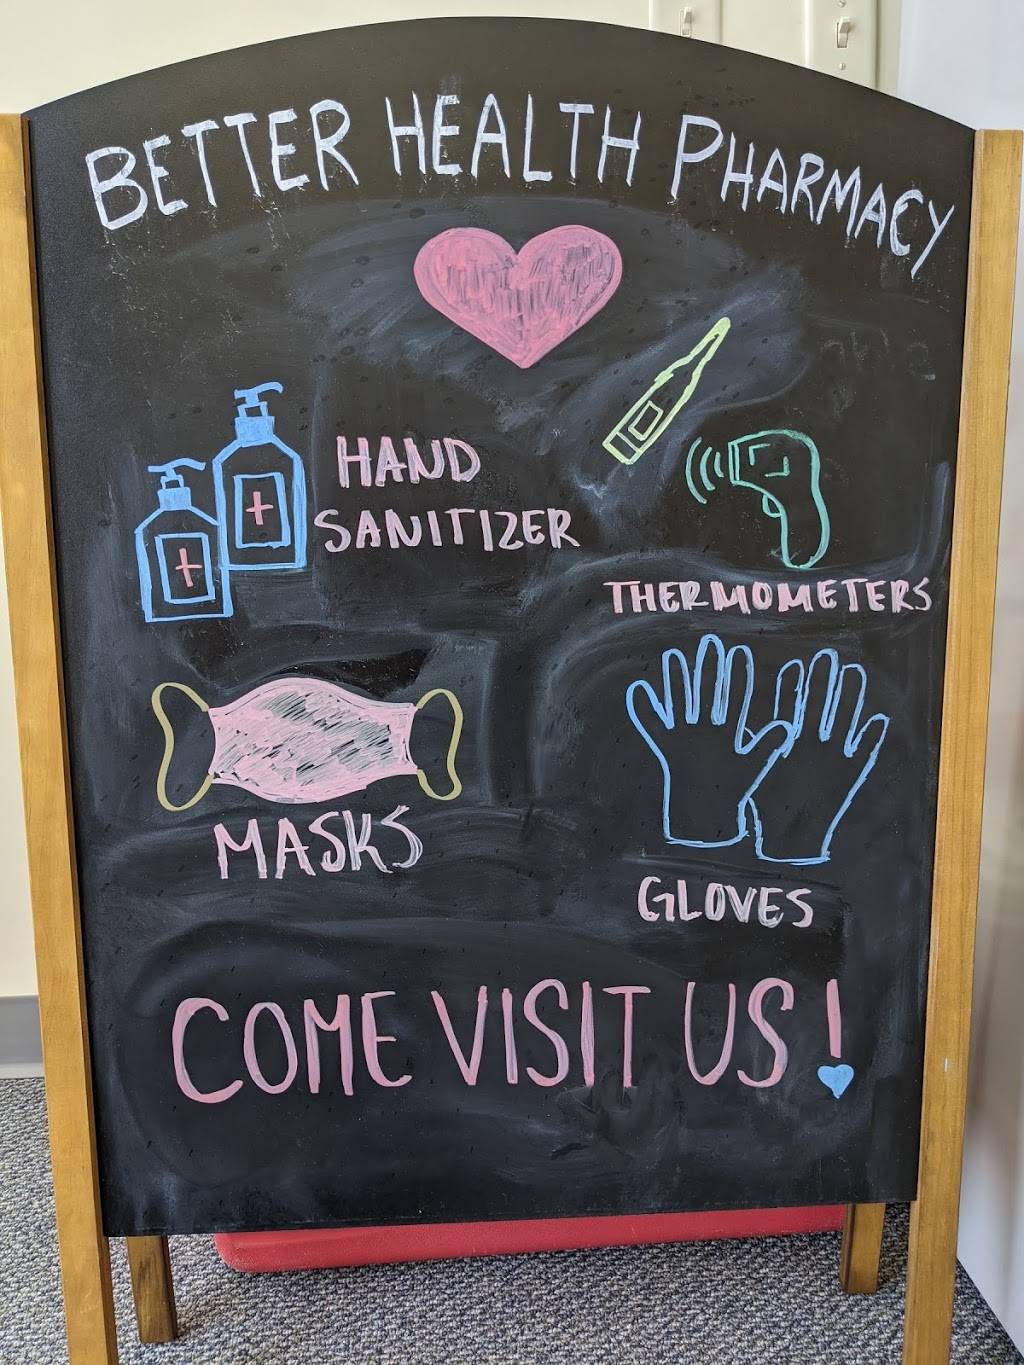 BETTER HEALTH PHARMACY
HAND
SANITIZER
THERMOMETERS
MASKS
GLOVES
COME VISIT US!